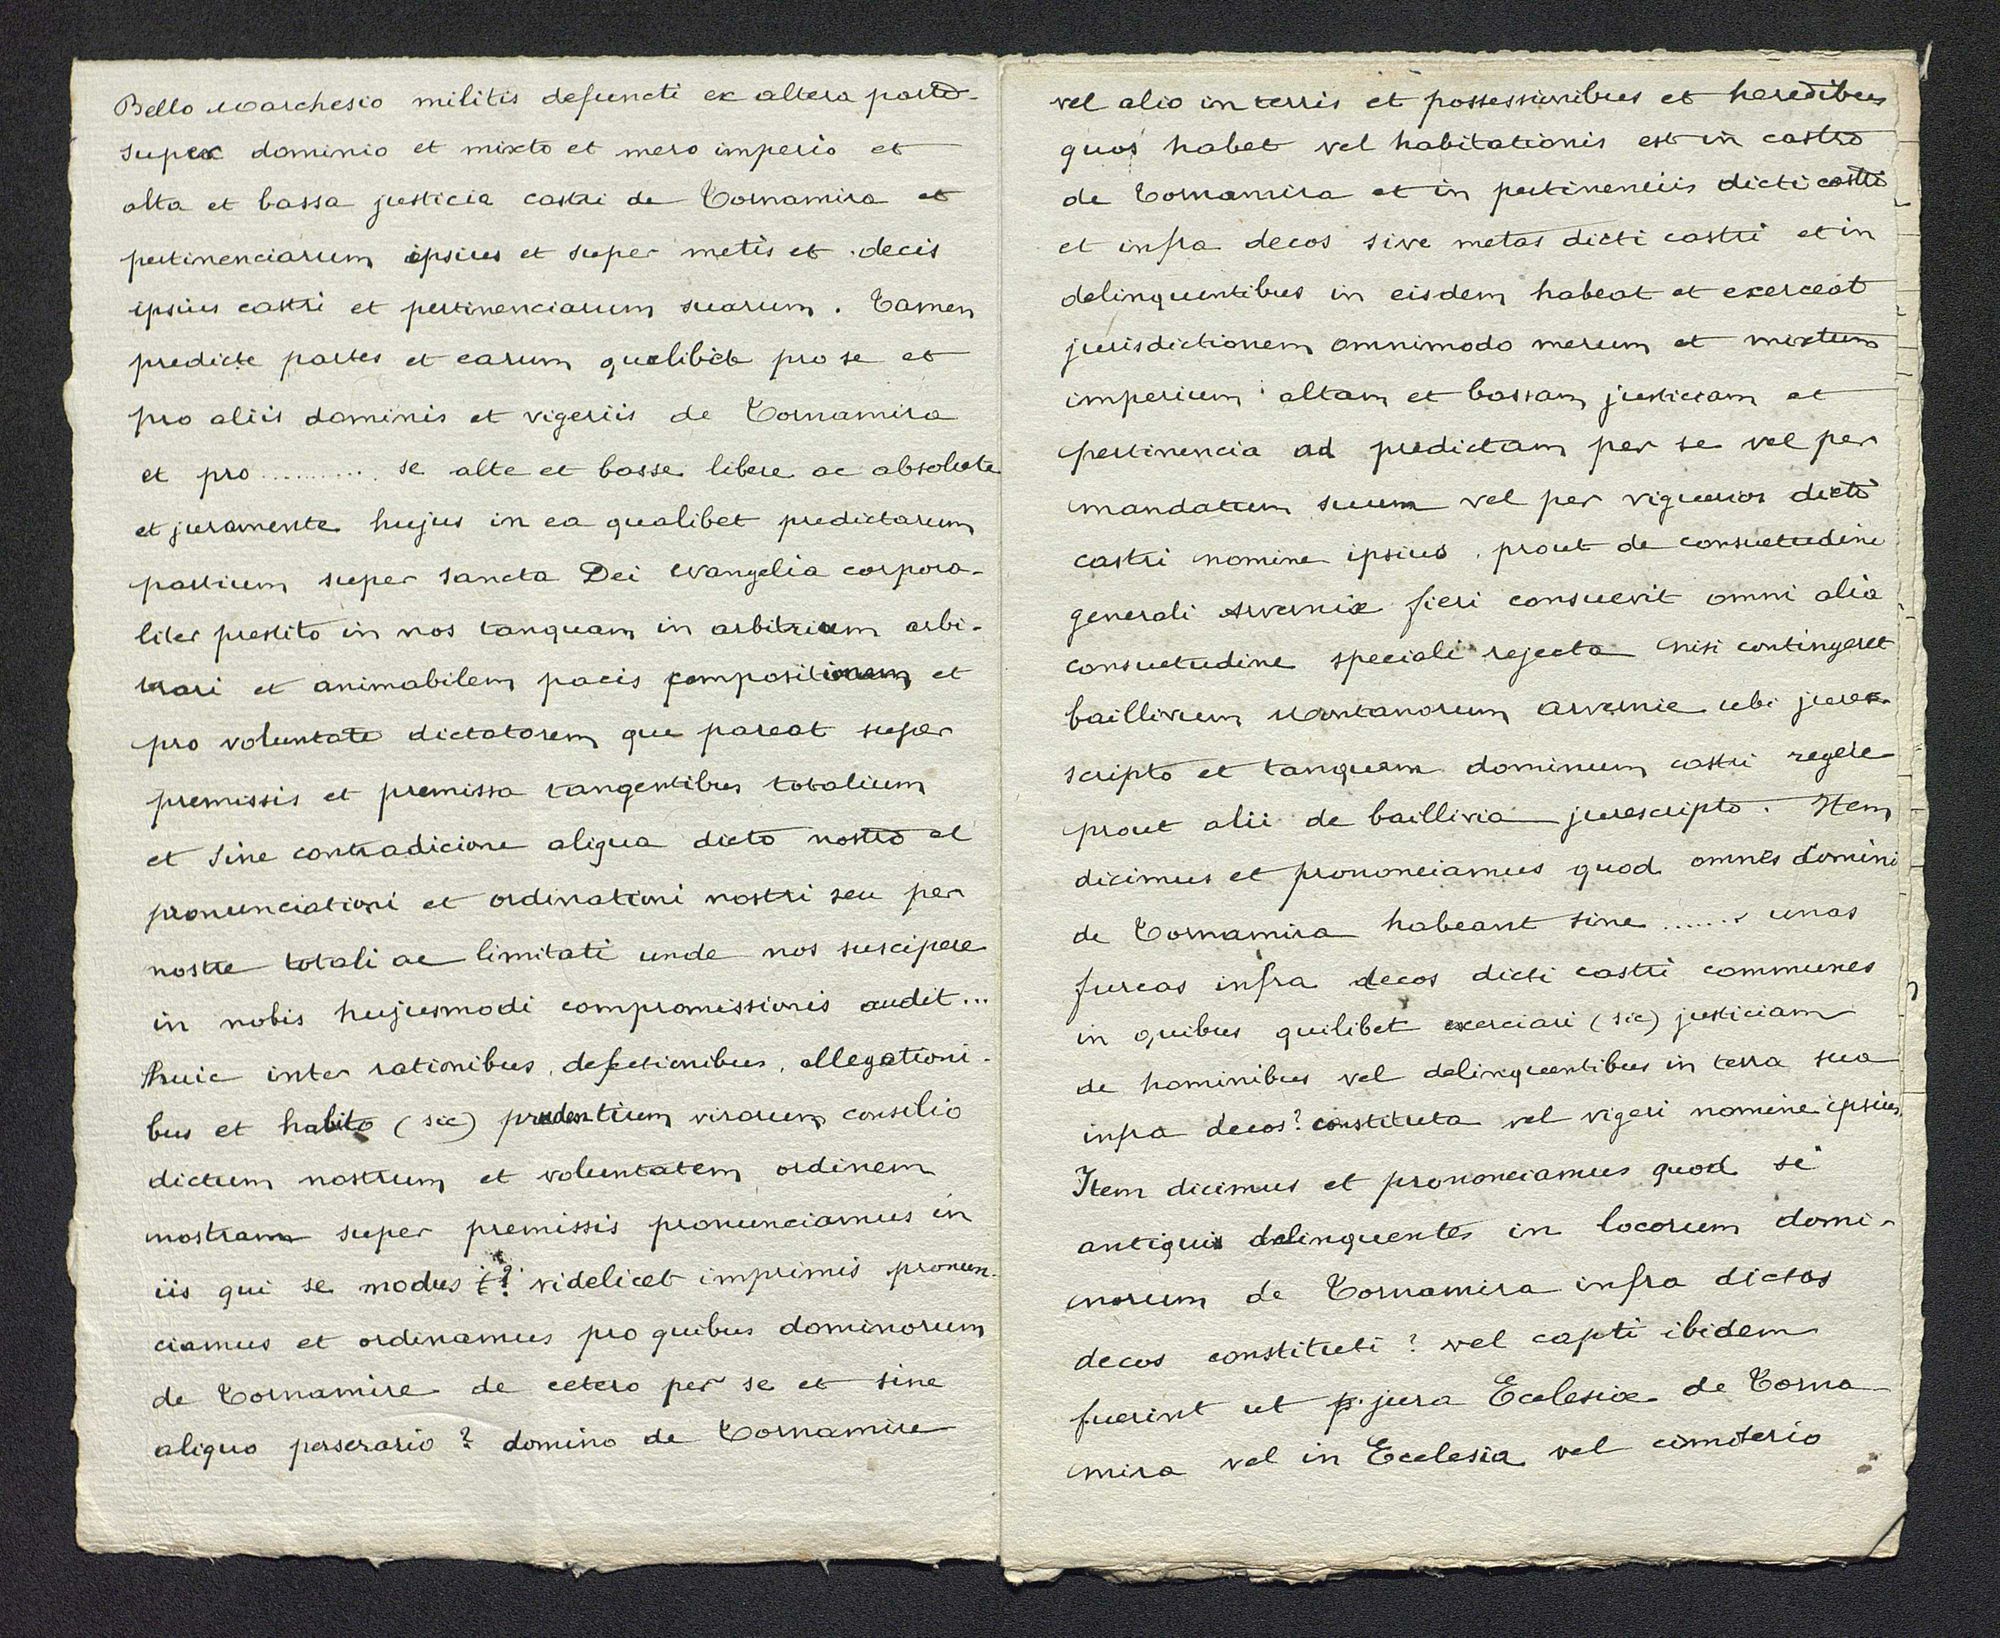 Bello Marchesio militis defuncti ex altera parte
super dominio et mixto et mero imperio et
alta et bassa justicia castri de Tornamira et
pertinenciarum ipsius et super metis et decis
ipsius castri et pertinenciarum suarum. Tamen
predicte partes et earum quelibet pro se et
pro aliis dominis et vigeriis de Tornamira
et pro .......... se alte et basse libere ac absolute
et juramente hujus in ea qualibet predictarum
partium super sancta Dei evangelia corpora-
liter prestito in nos tanquam in arbitrium arbi-
trari et animabilem pacis compositionem et
pro voluntate dictatorem que pareat super
premissis et premissa tangentibus totalium
et sine contradicione aliqua dicto nostro et
pronunciationi et ordinationi nostri seu per
nostre totali ac limitati unde nos suscipere
in nobis hujusmodi compromissionis audit...
huic inter rationibus, defectionibus, allegationi-
bus et habito (sic) prudentium virorum consilio
dictum nostrum et voluntatem ordinem
nostram super premissis pronunciamus in
iis qui se modus t? videlicet imprimis pronun-
ciamus et ordinamus pro quibus dominorum
de Tornamire de cetero per se et sine
aliquo perserario ? domino de Tornamire
vel alio in terris et possessionibus et heredibus
quos habet vel habitationis est in castro
de Tornamira et in pertinenciis dicti castri
et infra decos sive metas dicti castri et in
delinquentibus in eisdem habeat et exerceat
jurisdictionem omnimodo merum et mixtum
imperium altam et bassam justiciam et
pertinencia ad predictam per se vel per
mandatum suum vel per viguerios dicti
castri nomine ipsius, prout de consuetudine
generali Arverniæ fieri consuevit omni alia
consuetudine speciali rejecta nisi contingeret
baillivum Montanorum arvernie ubi jure
scripto et tanquam dominum castri regere
prout alii de baillivia jurescripto. Item
dicimus et prononciamus quod omnes domini
de Tornamira habeant sine ...... unas
furcas infra decos dicti castri communes
in quibus quilibet exerciari (sic) justiciam
de hominibus vel delinquentibus in terra sua
infra decos? constituta vel vigeri nomine ipsius
Item dicimus et prononciamus quod si
antiqui delinquentes in locorum domi-
norum de Tornamira infra dictos
decos constituti ? vel capti ibidem
fuerint ut p. jura Ecclesiæ de Torna
mira vel in Ecclesia vel cimiterio